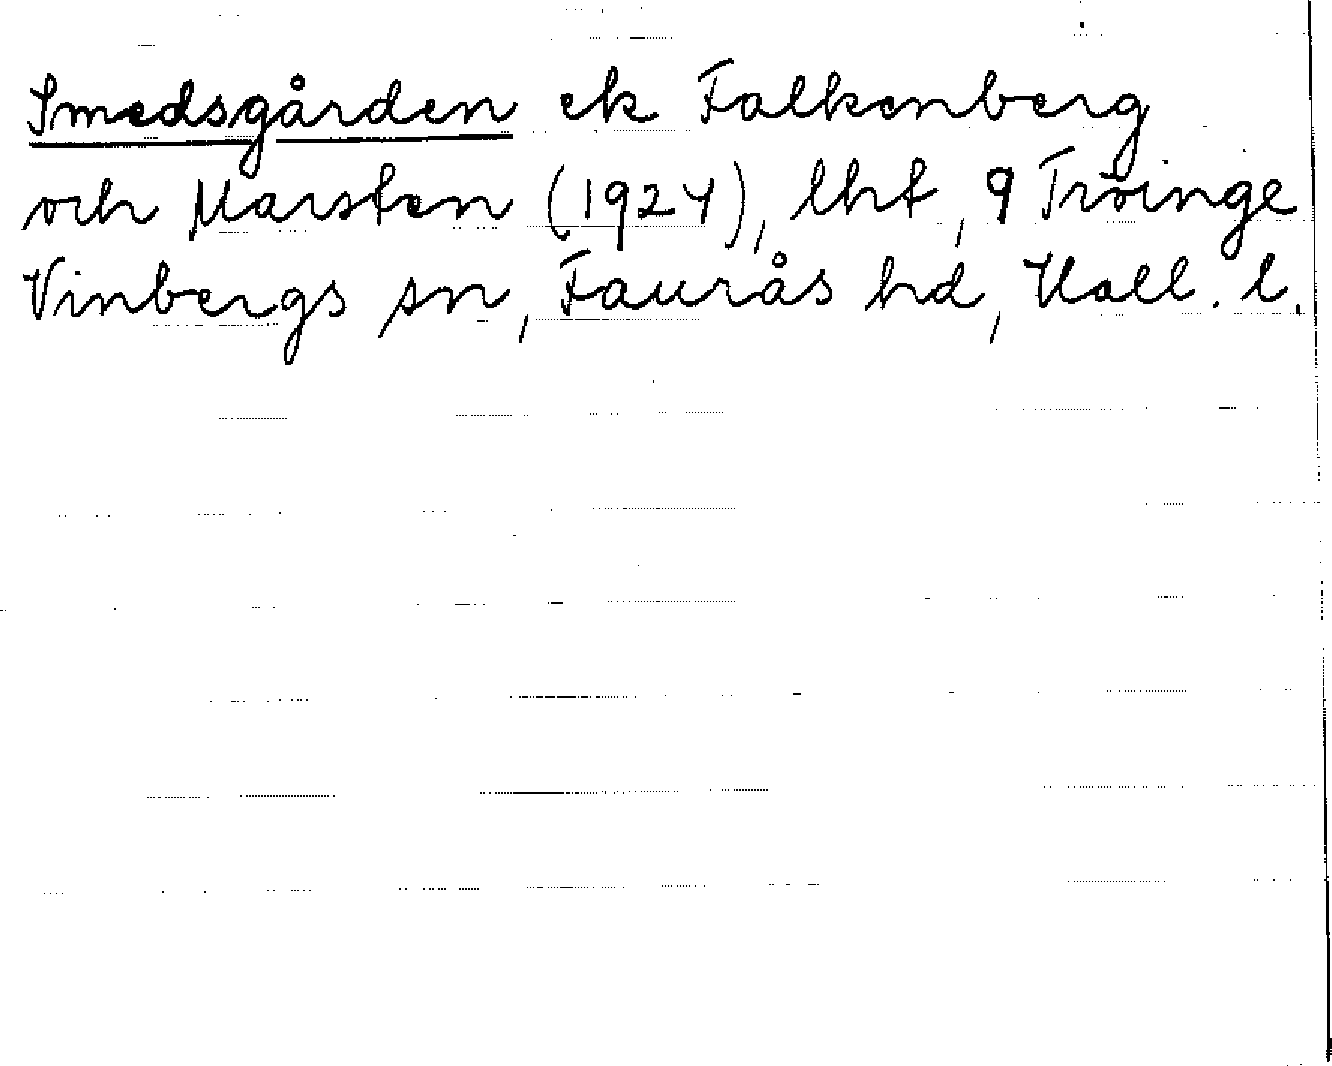 Smedsgården ek Falkenberg
och Marsten (1924), lht, 9 Tröinge
Vinbergs sn, Faurås hd, Hall. l.